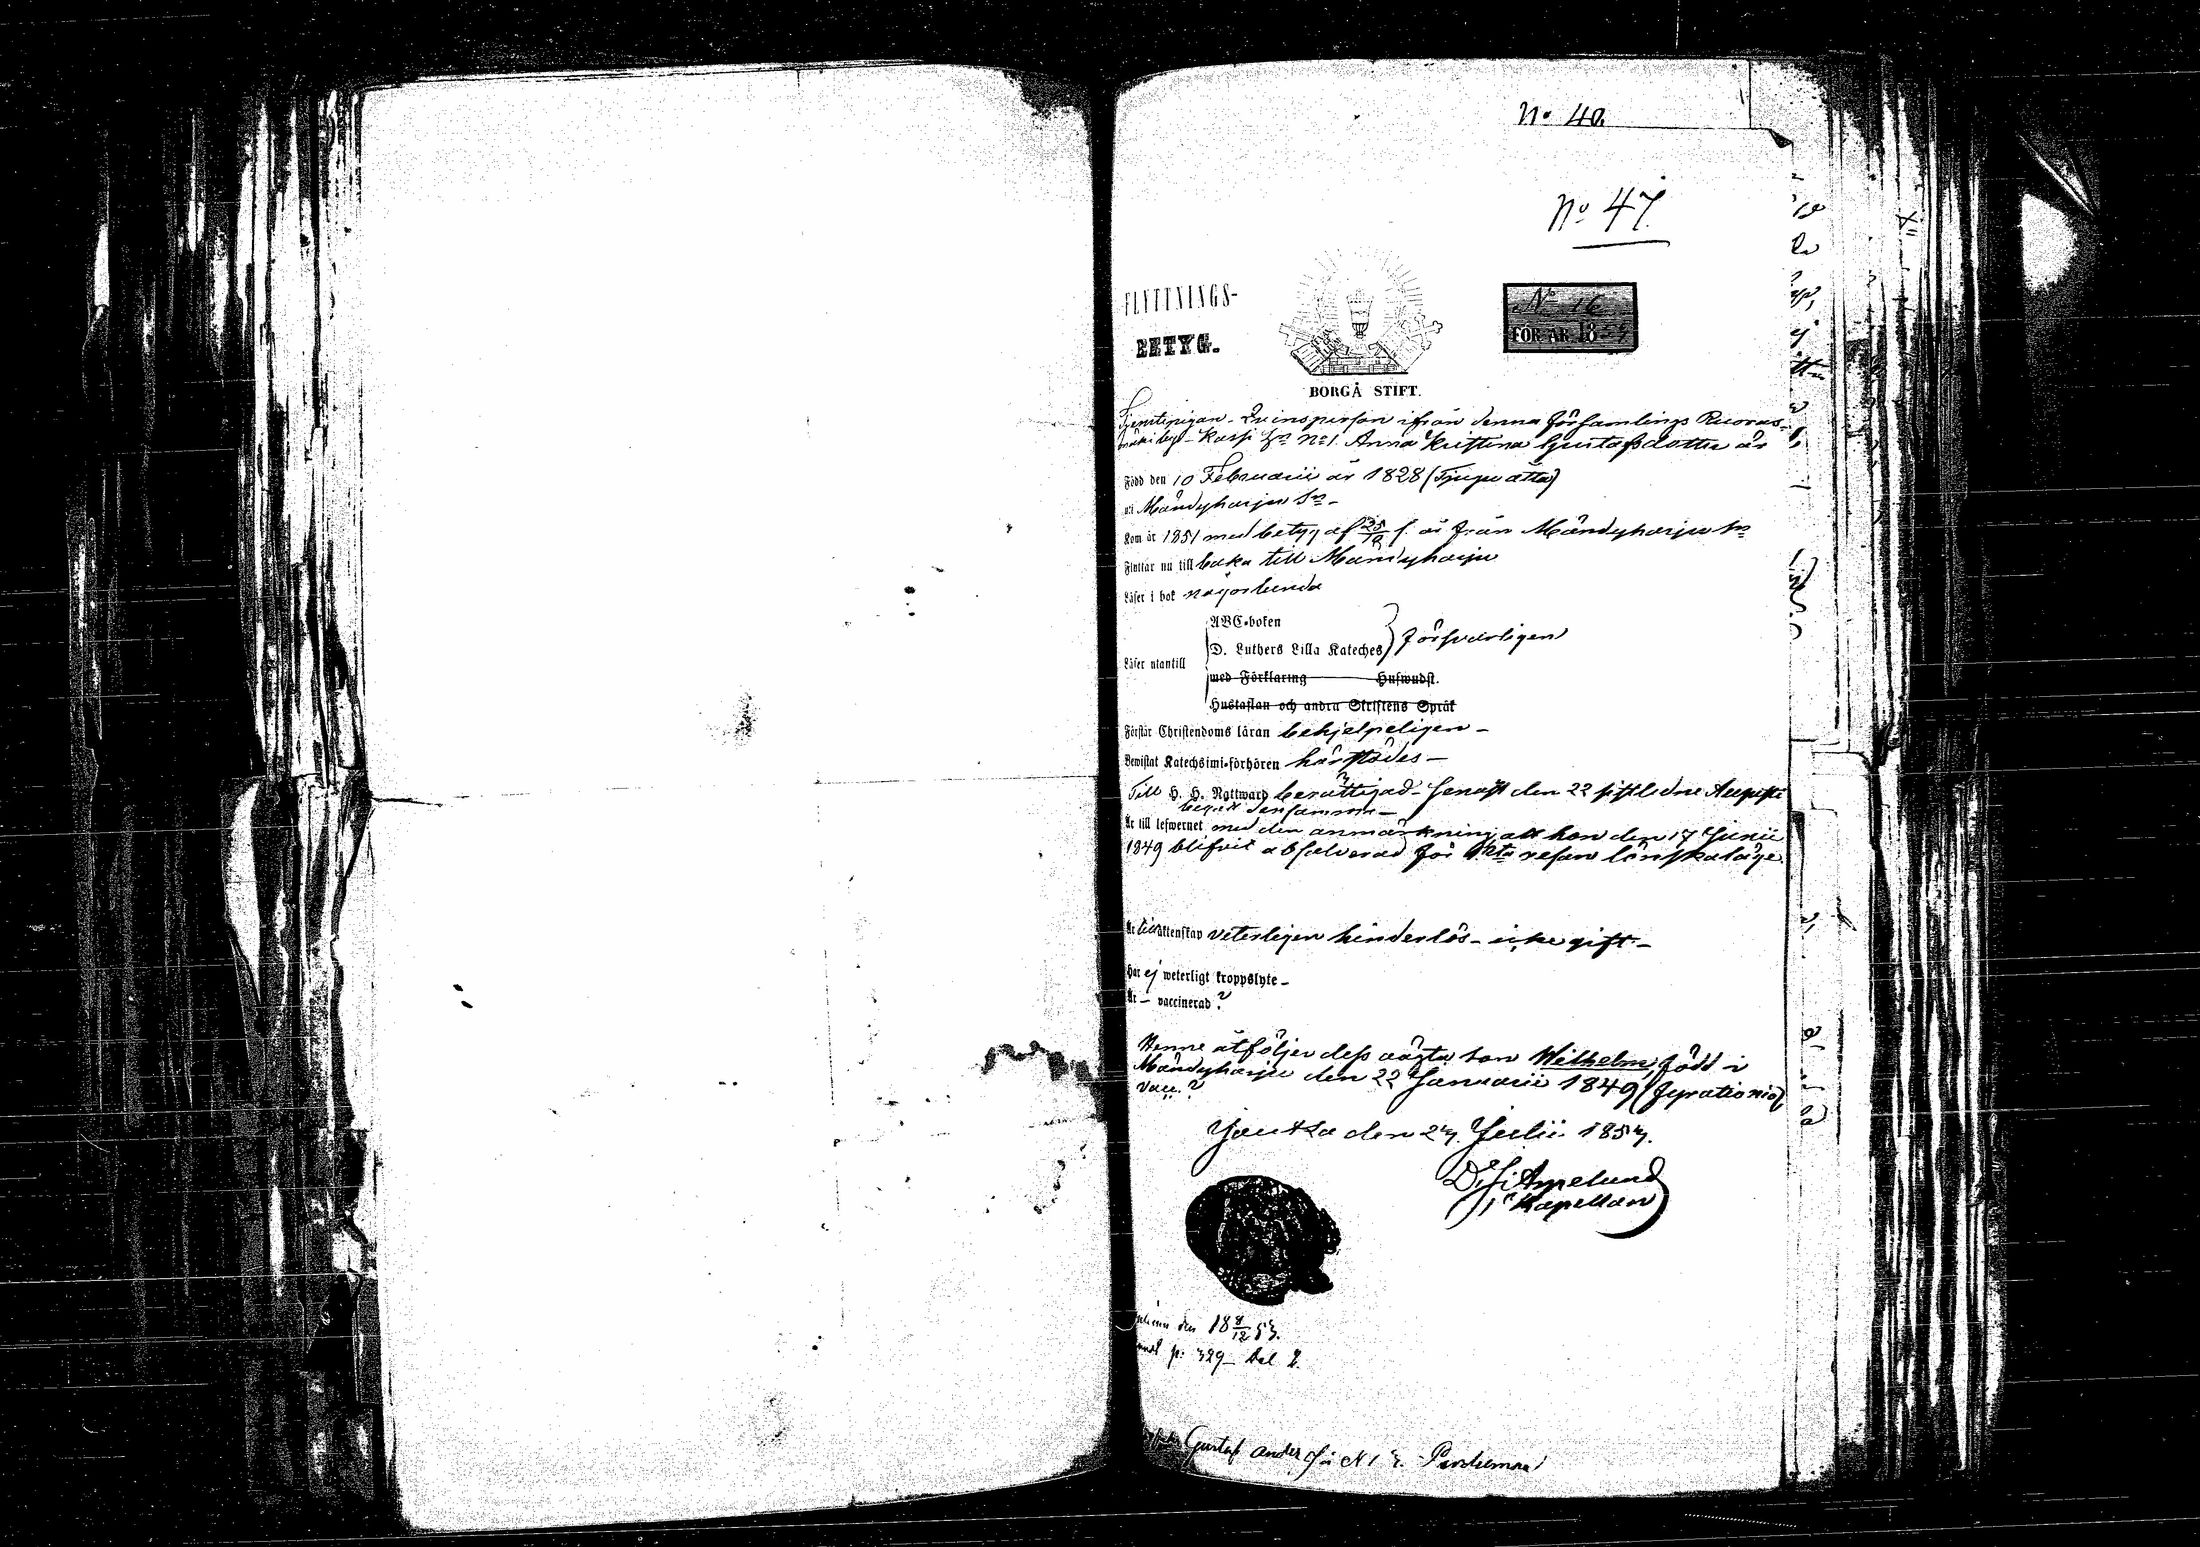 No 40.
No 47.
FLYTTNINGS-
BETYG.
No 16
FÖR ÅR 18
BORGÅ STIFT.
Tjenstepigan - Qvinsperson ifrån denna församlings Ruoras-
mäki by - Karsi Hn No 1. Anna Kristina Gustafsdotter är
Född den 10 Februarii år 1828 (Tjugu åtta)
uti Mändyharju Sn -
Kom år 1851 med betyg af 25/12 f. år från Mändyharju Sn
Flyttar nu till baka till Mändyharju
Läser i bok någorlunda
ABC-boken
D. Luthers Lilla Kateches } försvarligen
Läser utantill
med Förklaring Huswudst.
Hustaflan och andra Skriftens Språk
Förstår Christendoms läran behjelpeligen -
Bewistat Katechsimi-förhören härstädes -
Till H. H. Nattward berättigad - senast den 22 sistledne Augusti
begått densamma -
Är till lefwernet med den anmärkning att hon den 17 Junii
1849 blifvit absolverad för resan lönskaläge.
Är till äktenskap veterligen hinderlös - icke gift -
Har ej weterligt kroppslyte -
Är - vaccinerad ?
Henne åtföljer dess oägta son Wilhelm, född i
Mändyharju den 22 Januarii 1849 (fyrationio)
vacc. ?
Joutsa den 27. Julii 1857.
Appelund
Kapellan
den 18 8/12 57.
p: 329 Del 2.
Gustaf Anders N 1 Parduma